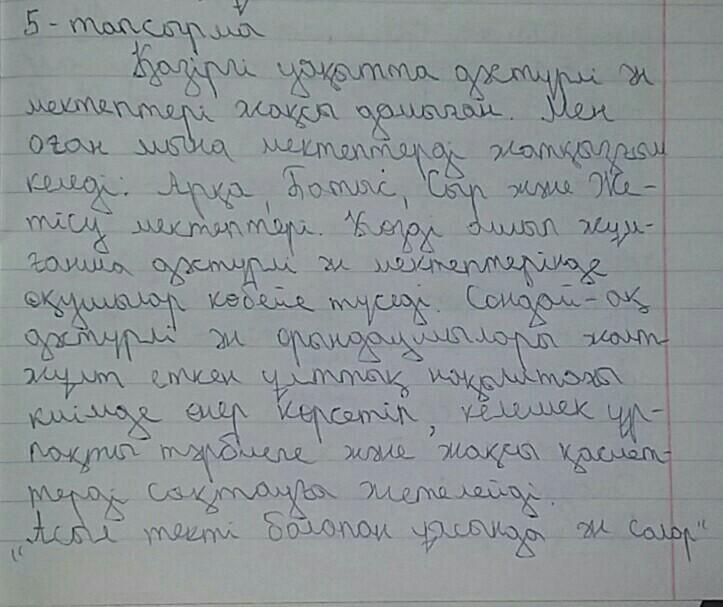 5-тапсырма
Қазіргі уақытта дәстүрлі ән
мектептері жақсы дамыған. Мен
оған мына мектептерді жатқызғым
келеді: Арқа, Батыс, Сыр және Же-
тісу мектептері. Көзді ашып жұм-
ғанша дәстүрлі ән мектептерінде
оқушылар көбейе түседі. Сондай-ақ
дәстүрлі ән орындаушылары жалт-
жұлт еткен ұлттық нақыштағы
киімде өнер көрсетіп, келешек ұр-
пақты тәрбиеге және жақсы қасиет-
терді сақтауға жетелейді.
"Асыл текті балапан ұясында ән салар"